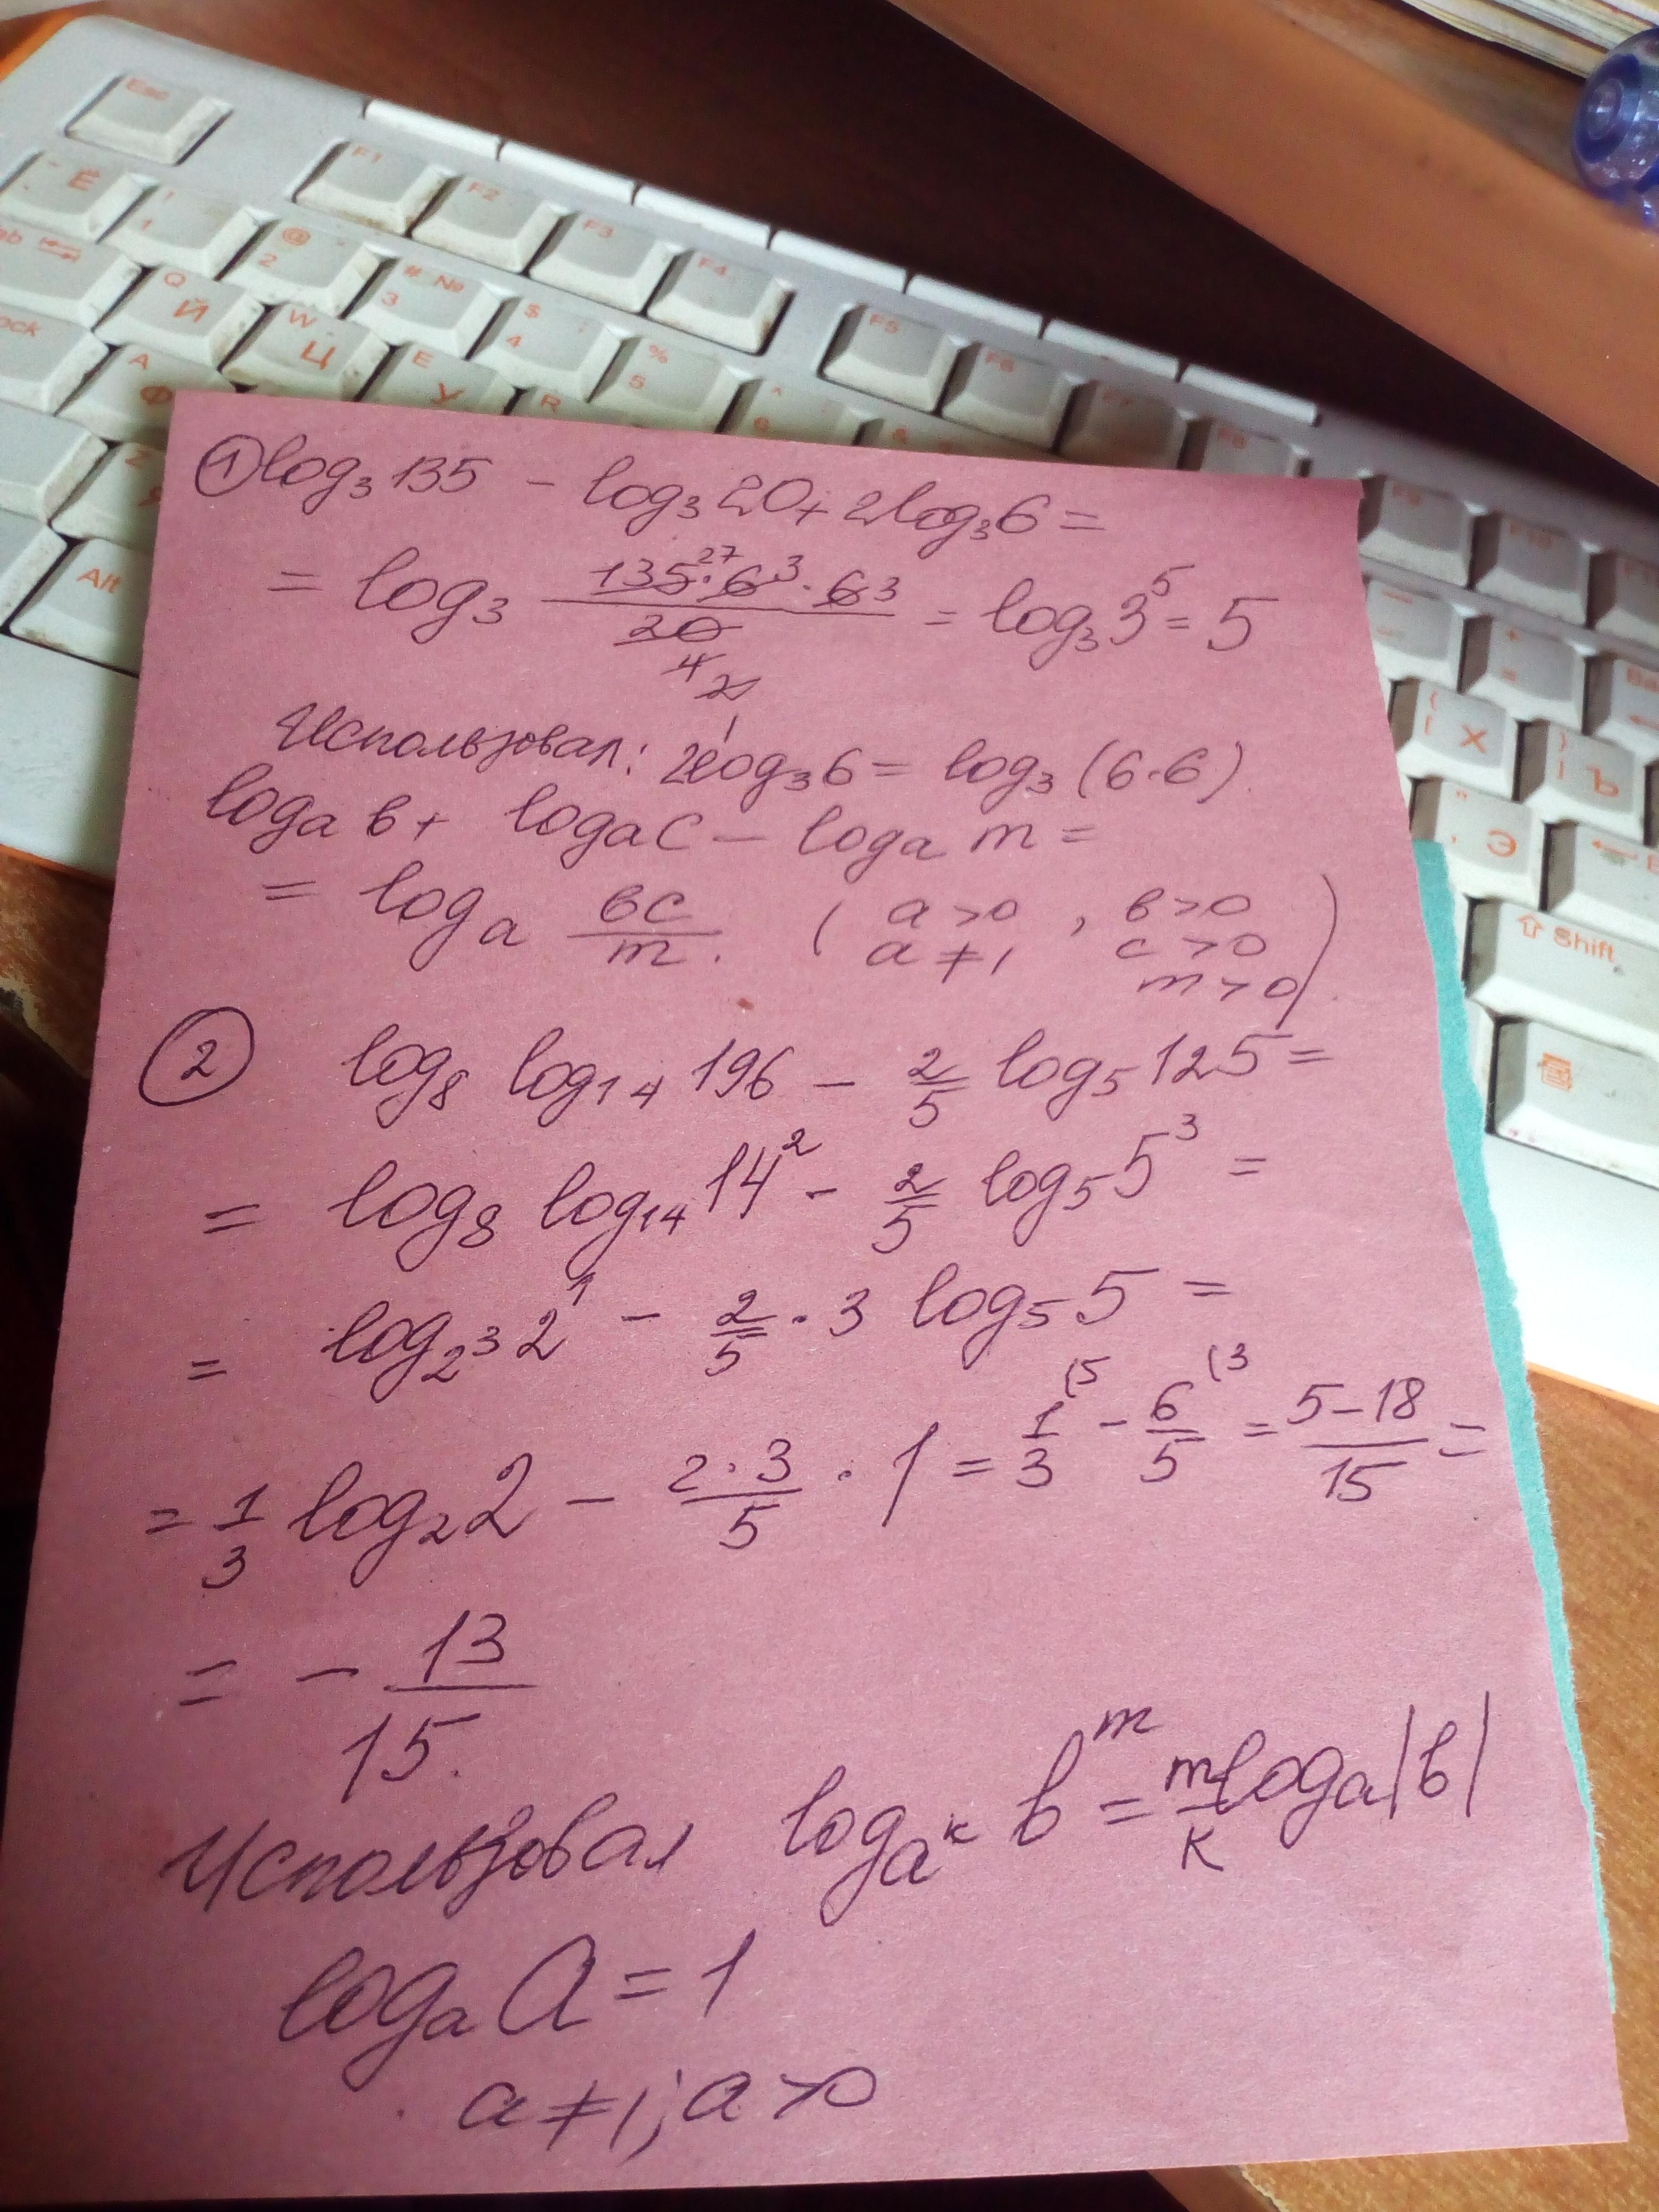 Esc
F1
F2
F3
F4
F5
F6
F8
F9
Ё
! 1
@ 2
# № 3
$ ; 4
% 5
Q Й
W Ц
E У
R
A Ф
Z Я
Alt
Х
Ъ
Э
Shift
① log₃ 135 - log₃ 20 + 2log₃ 6 =
= log₃ (135²⁷ · 6³ · 6³)/(20 4 2 1) = log₃ 3⁵ = 5
Использовал: 2log₃ 6 = log₃ (6·6).
logₐ в + logₐ c - logₐ m =
= logₐ вc/m. (a>0, a≠1, в>0 c>0 m>0).
② log₈ log₁₄ 196 - 2/5 log₅ 125 =
= log₈ log₁₄ 14² - 2/5 log₅ 5³ =
= log₂³ 2¹ - 2/5 · 3 log₅ 5 =
= 1/3 log₂ 2 - 2·3/5 · 1 = 1/3 (5 - 6/5 (3 = 5-18/15 =
= - 13/15.
Использовал log_aᵏ вᵐ = m/к logₐ |в|
logₐ a = 1
a ≠ 1; a > 0